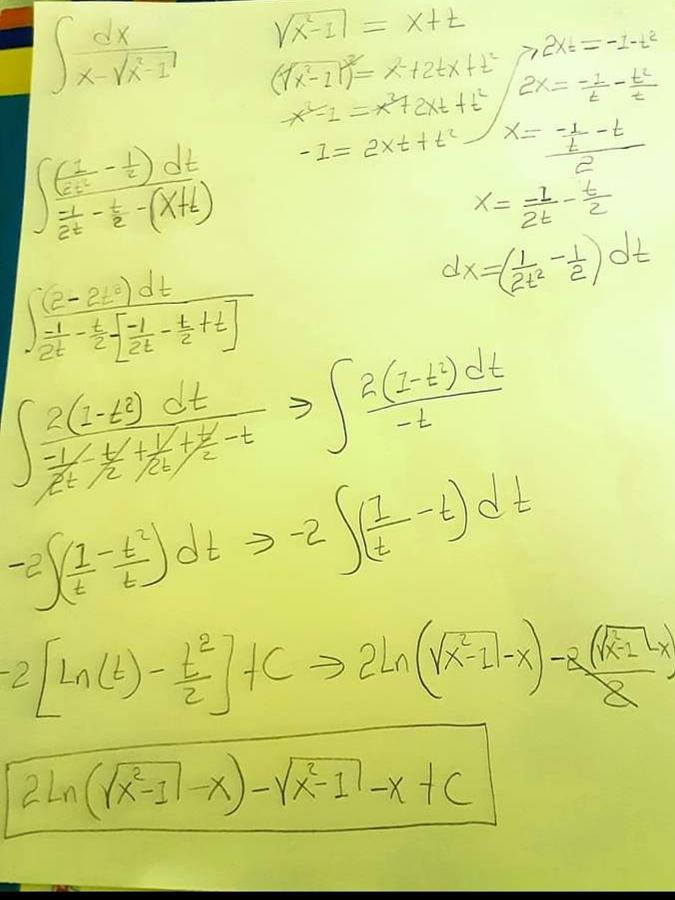 ∫ dx / (x - √(x²-1))
√(x²-1) = x+t
(√(x²-1))² = x²+2tx+t²
x²-1 = x²+2xt+t²
-1 = 2xt+t²
→ 2xt = -1-t²
2x = -1/t - t²/t
x = (-1/t - t)/2
x = -1/2t - t/2
dx = (1/2t² - 1/2) dt
∫ (1/2t² - 1/2) dt / (-1/2t - t/2 - (x+t))
∫ (2-2t²) dt / (-1/2t - t/2 - [-1/2t - t/2 + t])
∫ 2(1-t²) dt / (-1/2t - t/2 + 1/2t + t/2 - t) ⇒ ∫ 2(1-t²) dt / -t
-2∫(1/t - t²/t) dt ⇒ -2∫(1/t - t) dt
-2[Ln(t) - t²/2] + C ⇒ 2Ln(√(x²-1) - x) - 2(√(x²-1) - x)/2
2Ln(√(x²-1) - x) - √(x²-1) - x + C